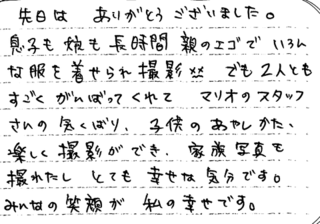 先日は ありがとうございました。
息子も娘も長時間 親のエゴで いろん
な服を着せられ撮影×× でも2人とも
すごく がんばってくれて マリオのスタッフ
さんの気くばり、子供のあやしかた、
楽しく撮影ができ、家族写真も
撮れたし とても幸せな気分です。
みんなの笑顔が 私の幸せです。